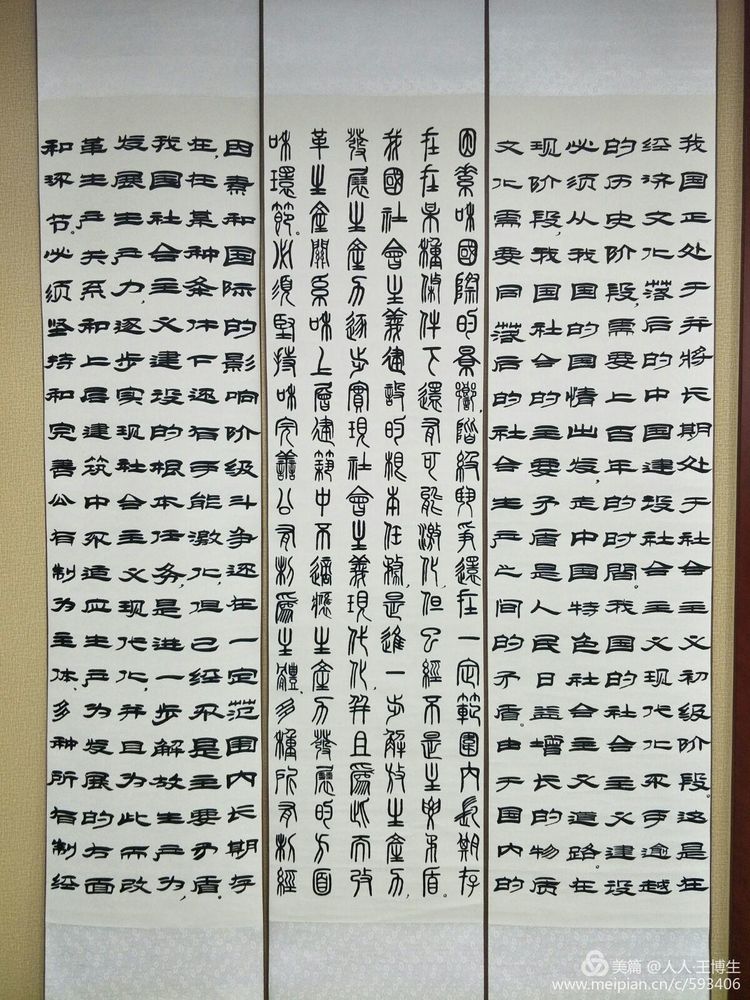 我国正处于并将长期处于社会主义初级阶段。这是在
经济文化落后的中国建设社会主义现代化不可逾越
的历史阶段,需要上百年的时间。我国的社会主义建设
必须从我国的国情出发,走中国特色社会主义道路。在
现阶段,我国社会的主要矛盾是人民日益增长的物质
文化需要同落后的社会生产之间的矛盾。由于国内的
因素和國際的影響,階級鬥爭還在一定範圍内長期存
在在某種條件下還有可能激化,但已經不是主要矛盾。
我國社會主義建設的根本任務,是進一步解放生產力,
發展生產力逐步實現社會主義現代化,并且爲此而改
革生產關系和上層建築中不適應生產力發展的方面
和環節。必須堅持和完善公有制爲主體、多種所有制經
因素和国际的影响阶级斗争还在一定范围内长期存
在,在某种条件下还有可能激化,但已经不是主要矛盾。
我国社会主义建设的根本任务,是进一步解放生产力,
发展生产力,逐步实现社会主义现代化,并且为此而改
革生产关系和上层建筑中不适应生产力发展的方面
和环节。必须坚持和完善公有制为主体、多种所有制经
美篇 @人人·王博生
www.meipian.cn/c/593406